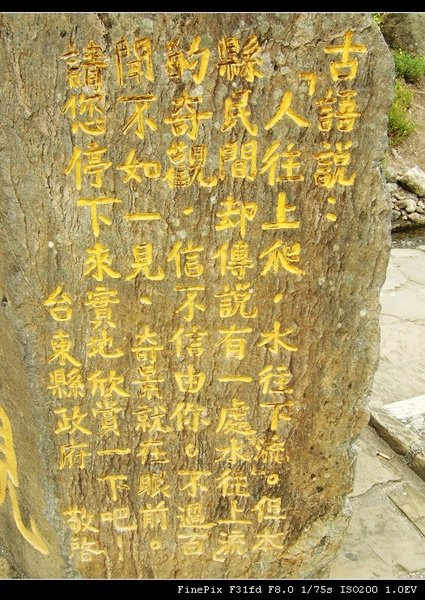 古語說：
「人往上爬，水往下流。但本
縣民間卻傳說有一處水從上流
的奇觀，信不信由你。不過百
聞不如一見、奇景就在眼前。
請您停下來實地欣賞一下吧！
台東縣政府 敬啓
FinePix F31fd F8.0 1/75s ISO200 1.0EV